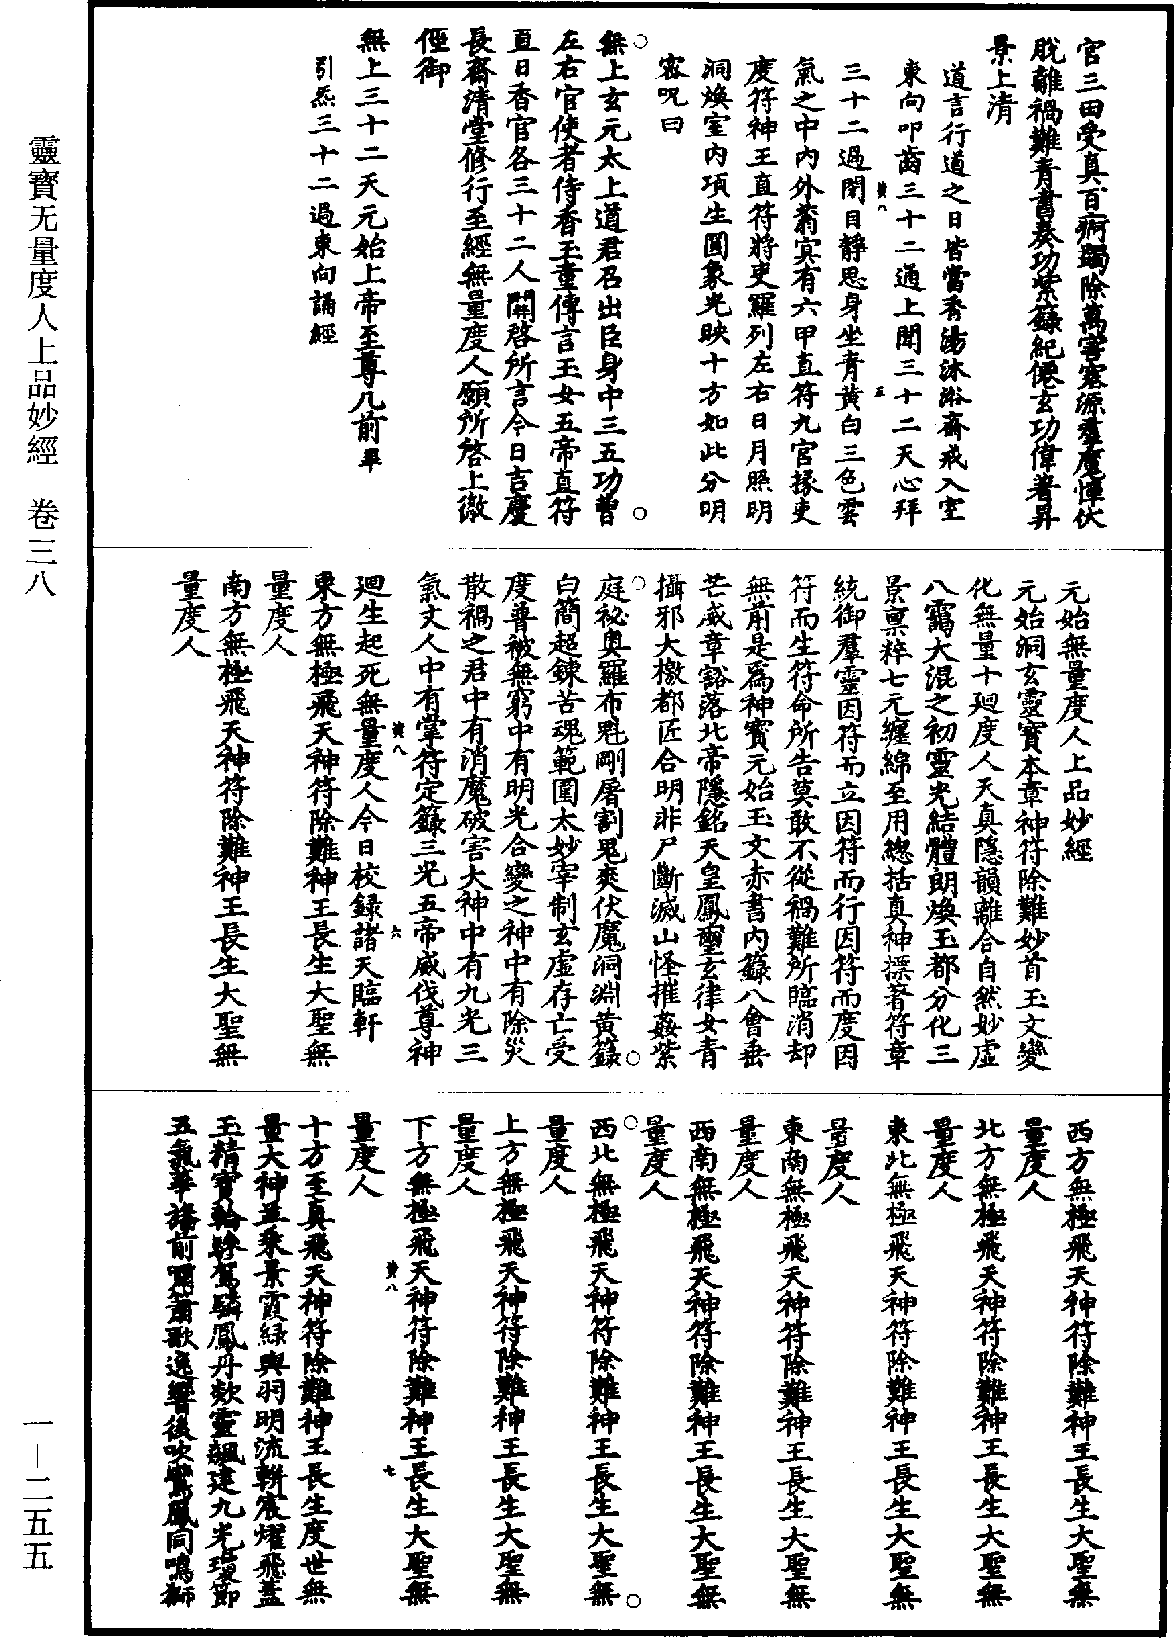 官三田受真百痾蠲除萬害寒源羣魔憚伏
脫離禍難青書奏功紫籙紀僊玄功偉著昇
景上清
道言行道之日皆當香湯沐浴齋戒入室
東向叩齒三十二通上聞三十二天心拜
三十二過閉目靜思身坐青黃白三色雲
氣之中內外蓊冥有六甲直符九宮掾吏
度符神王直符將吏羅列左右日月照明
洞煥室內項生圓象光映十方如此分明
密呪曰
無上玄元太上道君召出臣身中三五功曹
左右官使者侍香玉童傳言玉女五帝直符
直日香官各三十二人關啓所言今日吉慶
長齋清堂修行至經無量度人願所啓上徹
徑御
無上三十二天元始上帝至尊几前畢
引炁三十二過東向誦經
元始無量度人上品妙經
元始洞玄靈寶本章神符除難妙首玉文變
化無量十迴度人天真隱韻離合自然妙虛
八靄大混之初靈光結體朗煥玉都分化三
景稟粹七元纏綿至用總括真神摽著符章
統御羣靈因符而立因符而行因符而度因
符而生符命所告莫敢不從禍難所臨消却
無前是爲神寶元始玉文赤書內籙八會垂
芒威章豁落北帝隱銘天皇鳳璽玄律女青
攝邪大檄都匠合明非尸斷滅山怪摧姦紫
庭祕奧羅布魁剛屠割鬼爽伏魔洞淵黃籙
白簡超鍊苦魂範圍太妙宰制玄虛存亡受
度普被無窮中有明光合變之神中有除災
散禍之君中有消魔破害大神中有九光三
氣丈人中有掌符定籙三光五帝威伐尊神
迴生起死無量度人今日校錄諸天臨軒
東方無極飛天神符除難神王長生大聖無
量度人
南方無極飛天神符除難神王長生大聖無
量度人
西方無極飛天神符除難神王長生大聖無
量度人
北方無極飛天神符除難神王長生大聖無
量度人
東北無極飛天神符除難神王長生大聖無
量度人
東南無極飛天神符除難神王長生大聖無
量度人
西南無極飛天神符除難神王長生大聖無
量度人
西北無極飛天神符除難神王長生大聖無
量度人
上方無極飛天神符除難神王長生大聖無
量度人
下方無極飛天神符除難神王長生大聖無
量度人
十方至真飛天神符除難神王長生度世無
量大神並乘景霞綠輿羽明流軿宸耀飛蓋
玉精寶輪驂駕騏鳳丹欻靈飆建九光瓊節
五氣華旛前嘯簫歌逸響後吹鸞鳳同鳴獅
黃八
五
黃八
六
黃八
七
靈寶无量度人上品妙經 卷三八
一—二五五